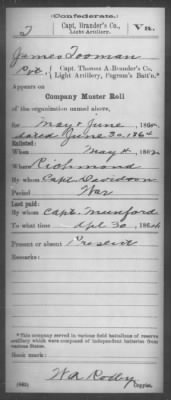 (Confederate.)
T Capt. Brander's Co., Va.
Light Artillery.
James Tooman
Pvt., Capt. Thomas A. Brander's Co.,
Light Artillery, Pegram's Batt'n.*
Appears on
Company Muster Roll
of the organization named above,
for May & June, 1864.
dated June 30, 1864
Enlisted:
When May 2, 1862
Where Richmond
By whom Capt. Davidson
Period War
Last paid:
By whom Capt. Munford
To what time Apl 30, 1864
Present or absent Present
Remarks:
*This company served in various field battalions of reserve
artillery which were composed of independent batteries from
various States.
Book mark:
W A Rodby
(642) Copyist.